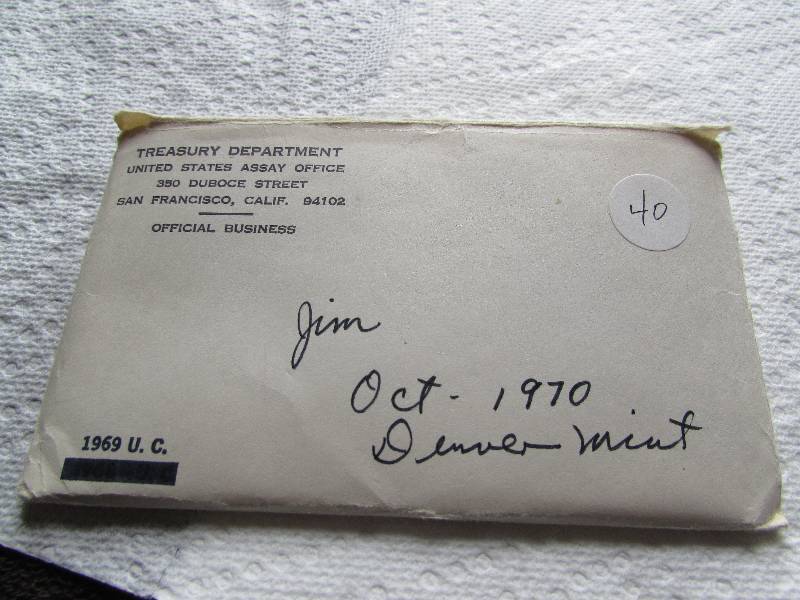 TREASURY DEPARTMENT
UNITED STATES ASSAY OFFICE
350 DUBOCE STREET
SAN FRANCISCO, CALIF. 94102
OFFICIAL BUSINESS
40
Jim
Oct - 1970
Denver Mint
1969 U. C.